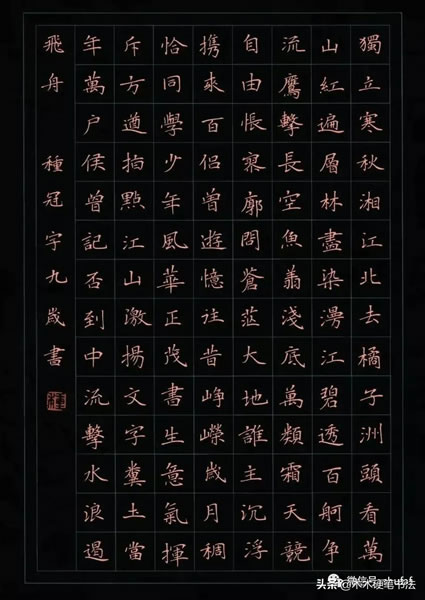 獨立寒秋湘江北去橘子洲頭看萬
山紅遍層林盡染漫江碧透百舸争
流鷹擊長空魚翔淺底萬類霜天競
自由悵寥廓問蒼茫大地誰主沉浮
攜來百侶曾遊憶往昔崢嶸歲月稠
恰同學少年風華正茂書生意氣揮
斥方遒指點江山激揚文字糞土當
年萬户侯曾記否到中流擊水浪遏
飛舟 種冠宇九歲書
头条@木木硬笔书法